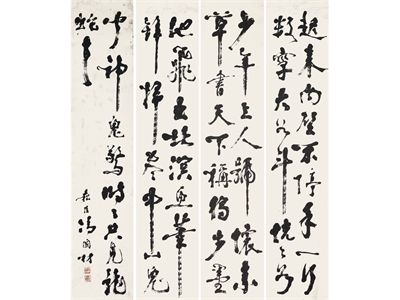 起來向壁不停手一行
數字大如斗恍恍如
少年上人號懷素
草書天下稱獨步墨
池飛出北溟魚筆
鋒掃盡中山兔
聞神鬼驚時々只見龍
蛇走
馮國材